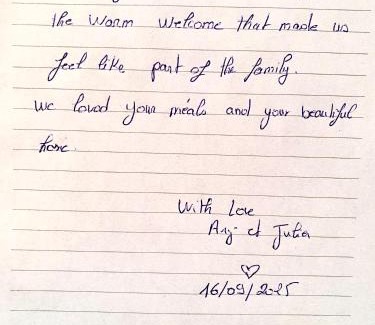 the warm welcome that made us
feel like part of the family.
we loved your meals and your beautiful
home.
With Love
et Julia
16/09/2025